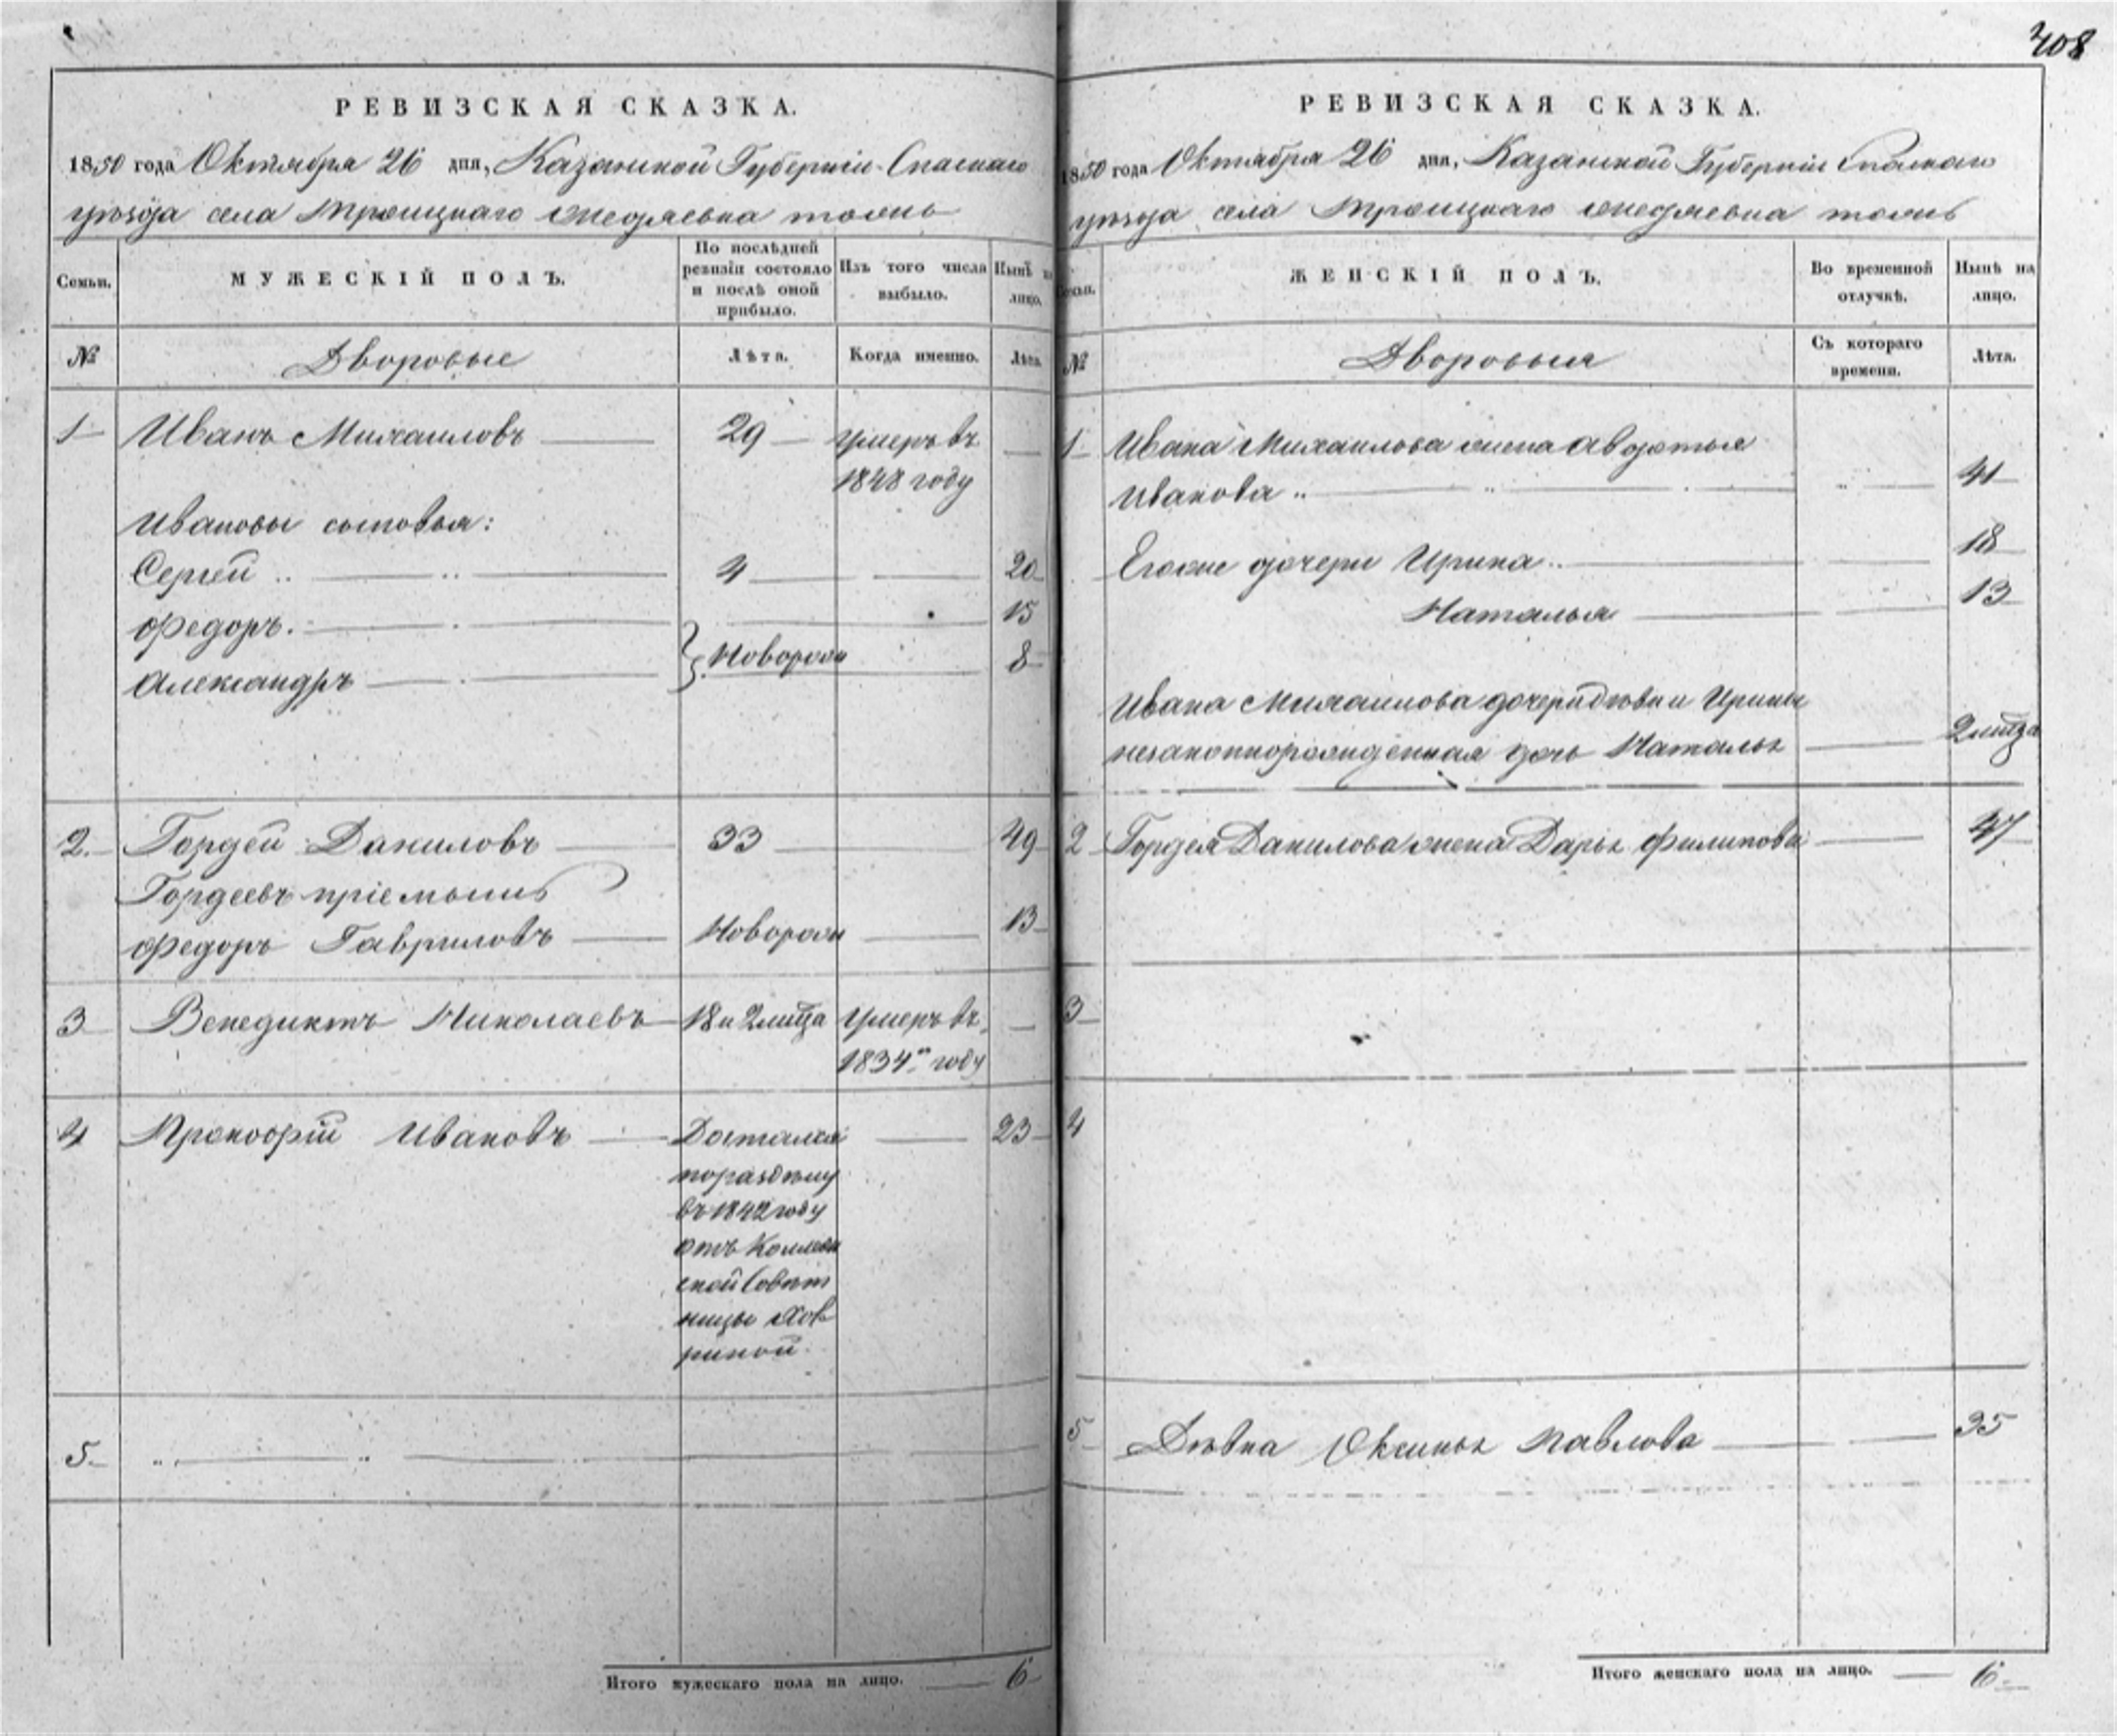 408
РЕВИЗСКАЯ СКАЗКА.
1850 года Октября 26 дня, Казанской Губерніи Спаскаго
уѣзда села Троицкаго
Семьи.
МУЖЕСКІЙ ПОЛЪ.
По послѣдней ревизіи состояло и послѣ оной прибыло.
Изъ того числа выбыло.
Нынѣ на лицо.
№
Дворовые
Лѣта.
Когда именно.
Лѣта.
1 Иванъ Михаиловъ 29 умеръ въ
1848 году
Ивановы сыновья:
Сергей 4 20
Федоръ. 15
Новорож 8
Александръ
2. Гордей Даниловъ 33 49
Гордеевъ пріемышъ
Федоръ Гавриловъ Новорож 13
3 Венедиктъ Николаевъ 18 и 2 мѣца Умеръ въ
1834м году
4 Прокофій Ивановъ Достался 23
поразделу
въ 1842 году
отъ Коллеж
ской Совѣт
ницы Хов
риной.
5.
Итого мужескаго пола на лицо. 6
РЕВИЗСКАЯ СКАЗКА.
1850 года Октября 26 дня, Казанской Губерніи Спаскаго
уѣзда села Троицкаго
Семьи.
ЖЕНСКІЙ ПОЛЪ.
Во временной отлучкѣ.
Нынѣ на лицо.
№
Дворовыя
Съ котораго времени.
Лѣта.
1 Ивана Михаилова жена Авдотья
Иванова 41
Егоже дочери Ирина 18
Наталья 13
Ивана Михаилова дочери дѣвки Ирины
незаконнорожденная дочь Наталья 2 мѣца
2 Гордея Данилова жена Дарья Филипова 47
3
4
5 Дѣвка Оксинья Павлова 35
Итого женскаго пола на лицо. 6